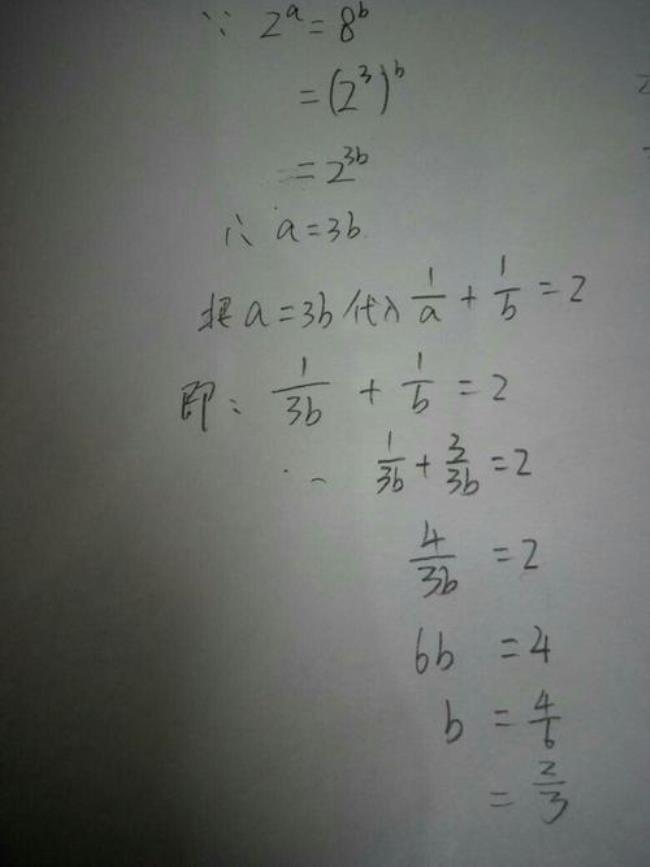 ∵ 2^a = 8^b
= (2^3)^b
= 2^{3b}
∴ a = 3b
把 a = 3b 代入 \frac{1}{a} + \frac{1}{b} = 2
即: \frac{1}{3b} + \frac{1}{b} = 2
\frac{1}{3b} + \frac{3}{3b} = 2
\frac{4}{3b} = 2
6b = 4
b = \frac{4}{6}
= \frac{2}{3}